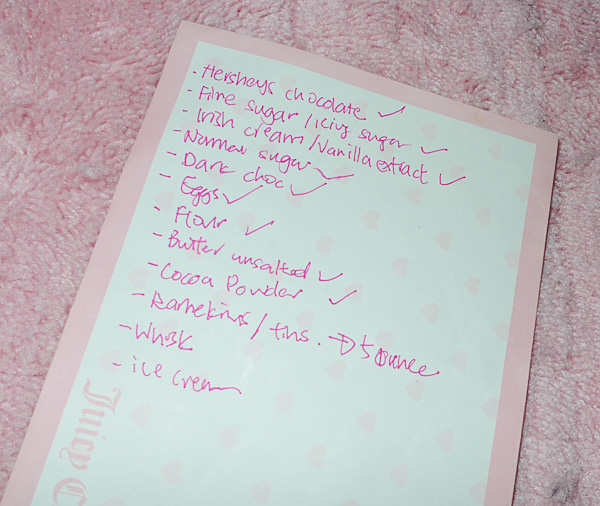 · Hersheys chocolate ✓
- Fine sugar / icing sugar ✓
- Irish cream / Vanilla extract ✓
- Normal sugar ✓
- Dark choc ✓
- Eggs ✓
- Flour ✓
- Butter unsalted ✓
- Cocoa Powder ✓
- Ramekins / tins. → 5 ounce
- Whisk
- ice cream
Juicy C